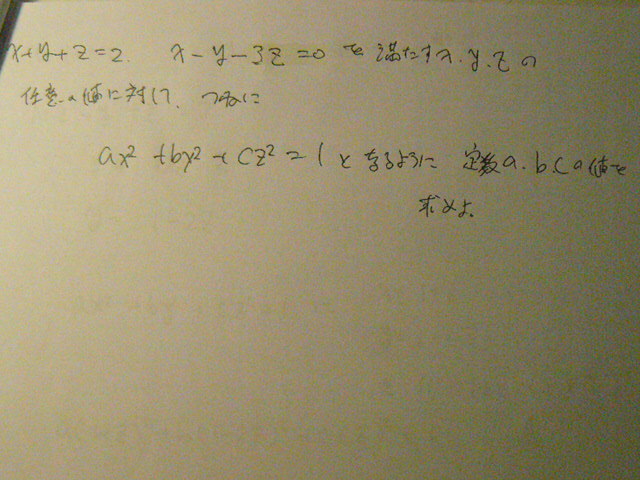 x+y+z=2. x-y-3z=0を満たすx.y.zの
任意の値に対して、つねに
ax²+by²+cz²=1となるように 定数a.b.cの値を
求めよ。